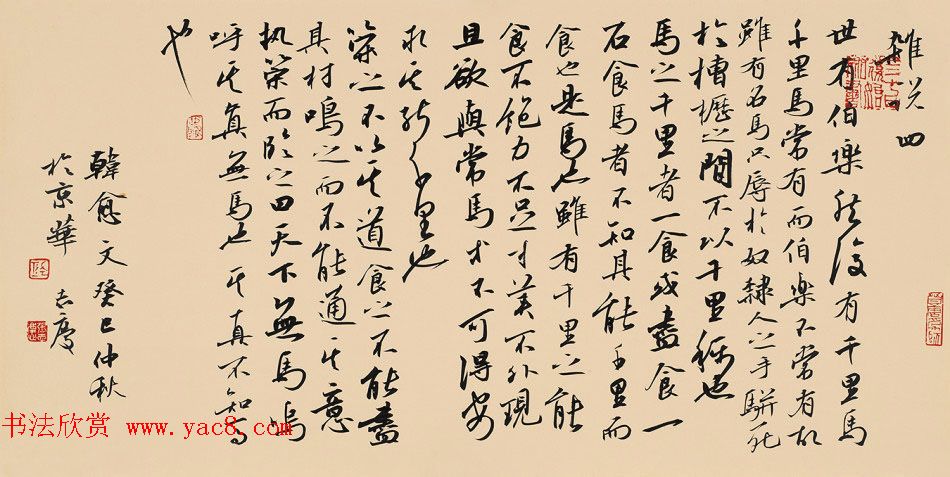 雜说四
世有伯樂然後有千里馬
千里馬常有而伯樂不常有故
雖有名馬只辱於奴隸人之手駢死
於槽櫪之間不以千里稱也
馬之千里者一食或盡食一
石食馬者不知其能千里而
食也是馬也雖有千里之能
食不飽力不足才美不外現
且欲與常馬等不可得安
求其能千里也
策之不以其道食之不能盡
其材鳴之而不能通其意
执策而临之曰天下無馬嗚
呼其真無馬也其真不知馬
也
韓愈文癸巳仲秋
於京華 志慶
书法欣赏 www.yac8.com